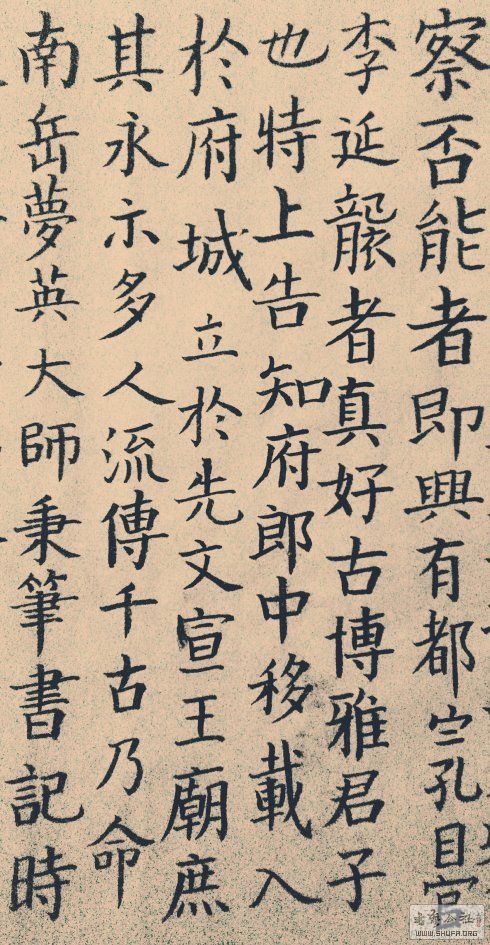 察否能者即興有都孔目官
李延襲者真好古博雅君子
也特上告知府郎中移載入
於府城立於先文宣王廟庶
其永示多人流傳千古乃命
南岳夢英大師秉筆書記時
WWW.SHUFA.ORG